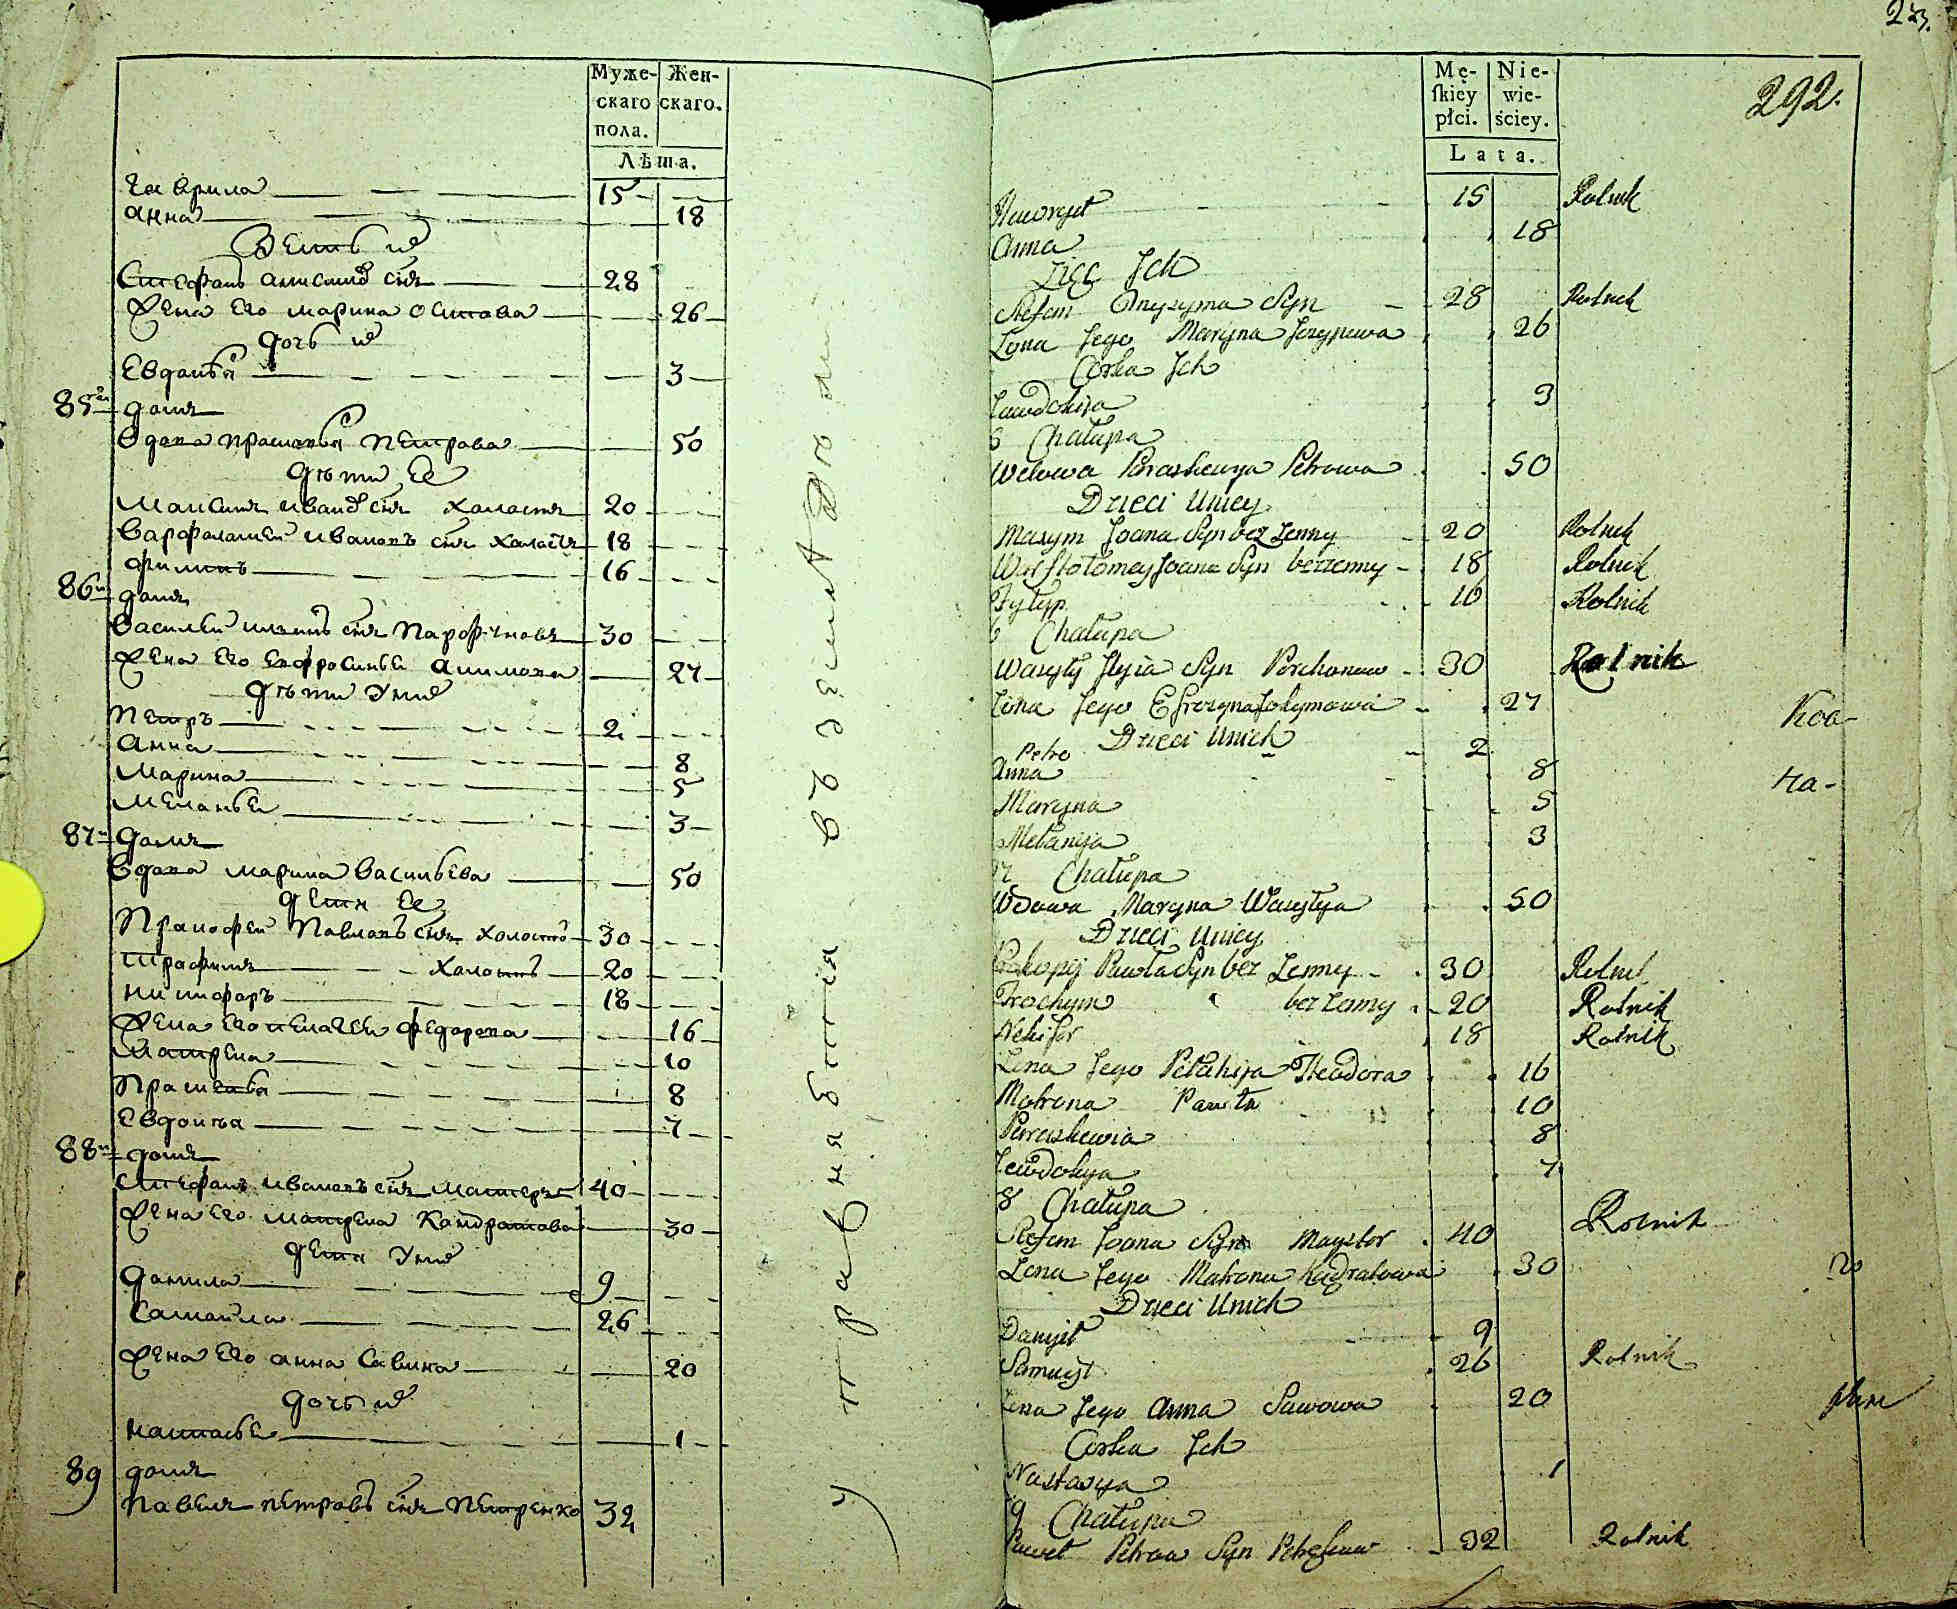 Муже-
скаго
пола.
Жен-
скаго.
Лѣта.
Гаврила 15
анна 18
Зять их
Стефанъ анисимов снъ 28
Жена Его марина осипова 26
дочь их
Евдокия 3
85 домъ
вдова прасковья Петрова 50
дѣти Ее
Максимъ иванов снъ холостъ 20
варфоломей ивановъ снъ холостъ 18
филипъ 16
86 домъ
Василий ильинъ снъ 30
Жена Его Евфросинья акимова 27
дѣти У них
Петръ 2
Анна 8
Марина 5
Меланья 3
87 домъ
вдова марина васильева 50
дети Ее
Прокофей Павловъ снъ холостъ 30
Трофимъ холостъ 20
никифоръ 18
Жена Его пелагея федорова 16
Матрена 10
Прасковья 8
Евдокия 7
88 домъ
Стефанъ ивановъ снъ 40
Жена Его матрена Кондратова 30
дети У них
данила 9
Самойла 26
Жена Его анна Савина 20
дочь их
настасья 1
89 домъ
павелъ петровъ снъ Петренко 32
27
292.
Mę-
ſkiey
płci.
Nie-
wie-
ściey.
Lata.
Hawrył 15 Rolnik
Anna 18
Zięć Ich
Stefan Onyzyma Syn 28 Rolnik
Żona Jego Maryna Jozypowa 26
Corka Ich
Jewdokija 3
Chałupa
Wdowa Paraskewya Petrowa 50
Dzieci Uniey
Maxym Joana Syn bez Żenny 20 Rolnik
Joana Syn bezżenny 18 Rolnik
Fyłyp 16 Rolnik
6 Chałupa
Wasyly Jlyia Syn 30 Rolnik
Żona Jego Efrozyna Jokymowa 27
Koo-
Dzieci Unich
Petro 2
Anna 8
на-
Maryna 5
Mełanija 3
Chałupa
Wdowa Maryna Wasylya 50
Dzieci Uniey
Prokopij Pawła Syn bez Żenny 30 Rolnik
Trochym bez Żenny 20 Rolnik
Nekifor 18 Rolnik
Żona Jego Pełahija Theodora 16
Motrona Pawła 10
Paraskewia 8
Jewdokya 7
8 Chałupa
Stefan Joana Syn Mayster 40 Rolnik
Żona Jego Motrona Kądratowa 30
Dzieci Unich
Danyił 9
Samuył 26 Rolnik
Żona Jego Anna Sawowa 20
Corka Ich
Nastasya 1
9 Chałupa
Paweł Petrow Syn 32 Rolnik